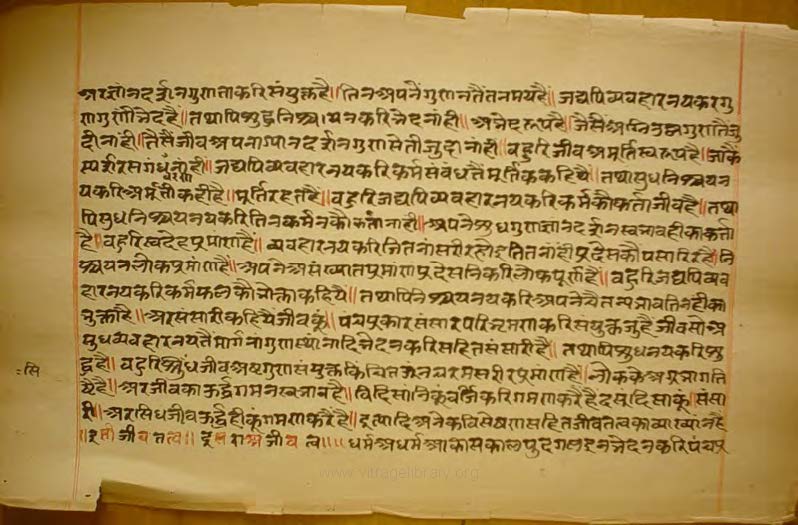 अरज्ञानदर्शनगुणताकरिसंयुक्तहै॥तिनअपनेंगुणनतैंतनमयहै॥जद्यपिव्यवहारनयकरगु
णागुणीभेदहै॥तथापिशुद्धनिश्चयनयकरिभेदनांही॥अभेदरूपहै॥जैसैंअग्निउष्नगुणतैंजु
दीनांही॥तैसैंजीवअपनाज्ञानदर्शनगुणसेतीजुदानांही॥बहुरिजीवअमूर्तिस्वरूपहै॥जाकैं
स्पर्शरसगंधवर्णनांही॥जद्यपिव्यवहारनयकरिकर्मसंबंधतैंमूर्तिककहिये॥तथापिसुधनिश्चयन
यकरिअमूर्तीकहीहै॥मूर्तिरहतहै॥बहुरिजद्यपिव्यवहारनयकरिकर्मकौकर्ताजीवहै॥तथा
पिसुधनिश्चयनयकरितिनकर्मनकौकर्तानाही॥अपनेशुधगुणज्ञानदर्शनस्वभावहीकाकर्ता
है॥बहुरिस्वदेहप्रमाणहै॥व्यवहारनयकरिजितनांसरीरहोइतितनांहीप्रदेसकौपसारिरहै॥नि
श्चयनलोकप्रमाणहै॥अपनेअसंख्यातप्रमाणप्रदेसनिकरिलोकपूर्णहै॥बहुरिजद्यपिव्यव
हारनयकरिकर्मफलकौभोक्ताकहिये॥तथापिनिश्चयनयकरिअपनेचैतन्यभावतिनहीका
भुक्ताहै॥अरसंसारीकहियेजीवकूं॥पंचप्रकारसंसारपरिभ्रमणकरिसंयुक्तजुहैंजीवसोअ
सुधव्यवहारनयतैमार्गनागुणस्थांनादिभेदनकरिसहितसंसारीहै॥तथापिशुधनयकरिशु
द्धहै॥बहुरिसिंधजीवअष्टगुणसंयुक्तकिंचितऊनचरमसरीरप्रमाणहै॥लोककेअग्रभागति
= सि
ष्टैहै॥अरजीवकाऊर्द्धगमनस्वभावहै॥विदिसानिकूंवर्जिकरिगमणकरैहैदसदिसाकूं॥संसा
री॥अरसिधजीवऊर्द्धहीकूंगमणकरैंहै॥इत्यादिअनेकविसेषणसहितजीवतत्वकाव्याख्यांनहै
॥इतीजीवतत्व॥दूसराअजीवत्व॥॥धर्मअधर्मआकासकालपुदगलइनभेदनकरिपंचप्र
www.vitragelibrary.org